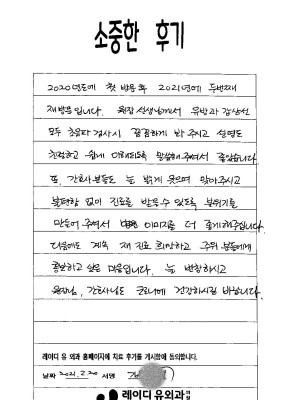 소중한 후기
2020년도에 첫 방문 후 2021년에 두번째
재방문입니다. 원장선생님께서 유방과 갑상선
모두 초음파 검사시 꼼꼼하게 봐 주시고 설명도
친절하고 쉽게 이해되도록 말씀해주셔서 좋았습니다.
또, 간호사분들도 늘 밝게 웃으며 맞아주시고
불편함 없이 진료를 받을 수 있도록 분위기를
만들어 주셔서 병원 이미지를 더 좋게해주십니다.
다음에도 계속 재 진료 희망하고 주위 분들에게
홍보하고 싶은 마음입니다. 늘 번창하시고
원장님, 간호사님도 코로나에 건강하시길 바랍니다.
레이디 유 외과 홈페이지에 치료 후기를 게시함에 동의합니다.
날짜 2021. 2. 20 서명 김
레이디유외과